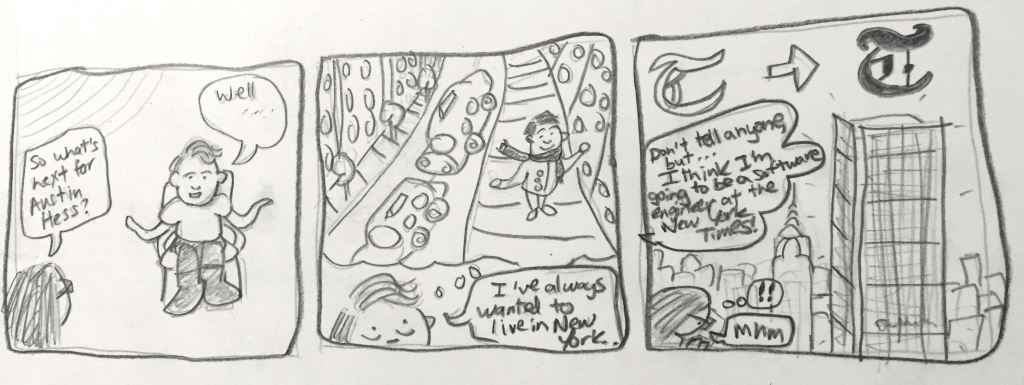 So what's
next for
Austin
Hess?
Well
....
I've always
wanted to
live in New
York.
T
T
Don't tell anyone,
but...
I think I'm
going to be a software
engineer at
the
New York
Times!
!!
Mmm